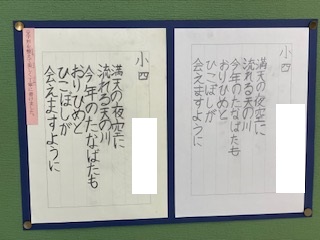 小四
満天の夜空に
流れる天の川
今年のたなばたも
おりひめと
ひこぼしが
会えますように
小四
満天の夜空に
流れる天の川
今年のたなばたも
おりひめと
ひこぼしが
会えますように